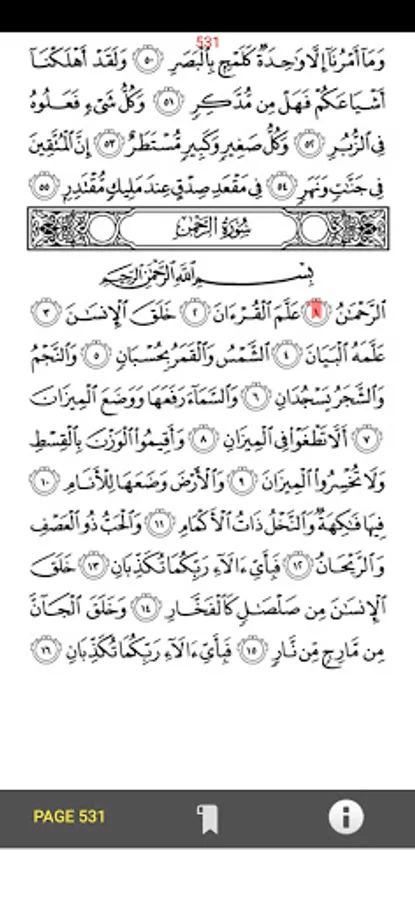 531
وَمَآ أَمْرُنَآ إِلَّا وَٰحِدَةٌ كَلَمْحٍۭ بِٱلْبَصَرِ ٥٠ وَلَقَدْ أَهْلَكْنَآ
أَشْيَاعَكُمْ فَهَلْ مِن مُّدَّكِرٍ ٥١ وَكُلُّ شَىْءٍ فَعَلُوهُ
فِى ٱلزُّبُرِ ٥٢ وَكُلُّ صَغِيرٍ وَكَبِيرٍ مُّسْتَطَرٌ ٥٣ إِنَّ ٱلْمُتَّقِينَ
فِى جَنَّٰتٍ وَنَهَرٍ ٥٤ فِى مَقْعَدِ صِدْقٍ عِندَ مَلِيكٍ مُّقْتَدِرٍۭ ٥٥
سُورَةُ الرَّحْمَٰن
بِسْمِ ٱللَّهِ ٱلرَّحْمَٰنِ ٱلرَّحِيمِ
ٱلرَّحْمَٰنُ ١ عَلَّمَ ٱلْقُرْءَانَ ٢ خَلَقَ ٱلْإِنسَٰنَ ٣
عَلَّمَهُ ٱلْبَيَانَ ٤ ٱلشَّمْسُ وَٱلْقَمَرُ بِحُسْبَانٍ ٥ وَٱلنَّجْمُ
وَٱلشَّجَرُ يَسْجُدَانِ ٦ وَٱلسَّمَآءَ رَفَعَهَا وَوَضَعَ ٱلْمِيزَانَ
٧ أَلَّا تَطْغَوْا۟ فِى ٱلْمِيزَانِ ٨ وَأَقِيمُوا۟ ٱلْوَزْنَ بِٱلْقِسْطِ
وَلَا تُخْسِرُوا۟ ٱلْمِيزَانَ ٩ وَٱلْأَرْضَ وَضَعَهَا لِلْأَنَامِ ١٠
فِيهَا فَٰكِهَةٌ وَٱلنَّخْلُ ذَاتُ ٱلْأَكْمَامِ ١١ وَٱلْحَبُّ ذُو ٱلْعَصْفِ
وَٱلرَّيْحَانُ ١٢ فَبِأَىِّ ءَالَآءِ رَبِّكُمَا تُكَذِّبَانِ ١٣ خَلَقَ
ٱلْإِنسَٰنَ مِن صَلْصَٰلٍ كَٱلْفَخَّارِ ١٤ وَخَلَقَ ٱلْجَآنَّ
مِن مَّارِجٍ مِّن نَّارٍ ١٥ فَبِأَىِّ ءَالَآءِ رَبِّكُمَا تُكَذِّبَانِ ١٦
PAGE 531